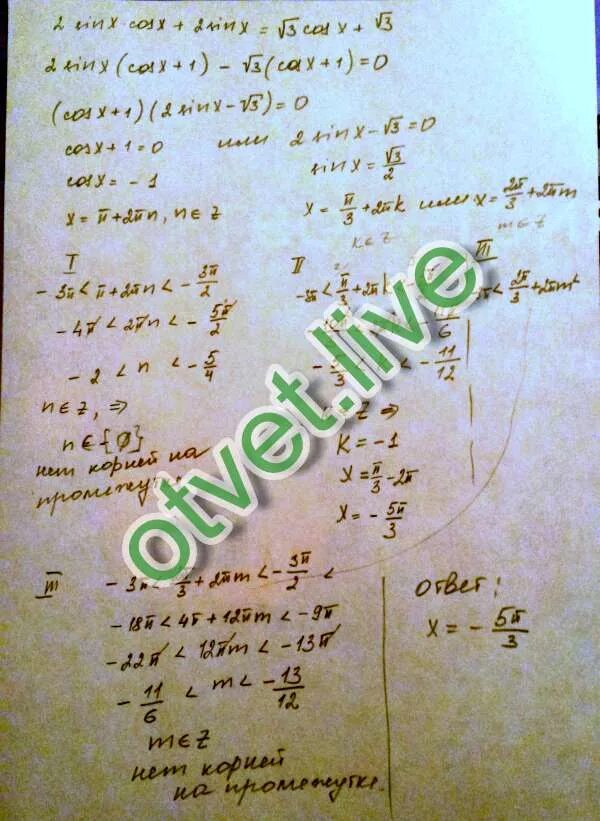 2 sinx·cosx + 2 sinx = √3 cosx + √3
2 sinx (cosx+1) - √3 (cosx+1) = 0
(cosx+1)(2 sinx-√3) = 0
cosx+1=0 или 2 sinx-√3=0
cosx=-1
sinx=√3/2
x=π+2πn, n∈Z
x=π/3+2πk или x=2π/3+2πm
k∈Z m∈Z
I
-3π<π+2πn<-3π/2
-4π<2πn<-5π/2
-2<n<-5/4
n∈Z, ⇒
n∈{∅}
нет корней на
II
-3π<π/3+2πk
6
-5/3 < -11/12
Z ⇒
K=-1
x=π/3-2π
x=-5π/3
III
2π/3+2πm
otvet.live
III
-3π< /3+2πm<-3π/2 <
-18π<4π+12πm<-9π
-22π<12πm<-13π
-11/6<m<-13/12
m∈Z
нет корней
на промежутке.
ответ:
x=-5π/3